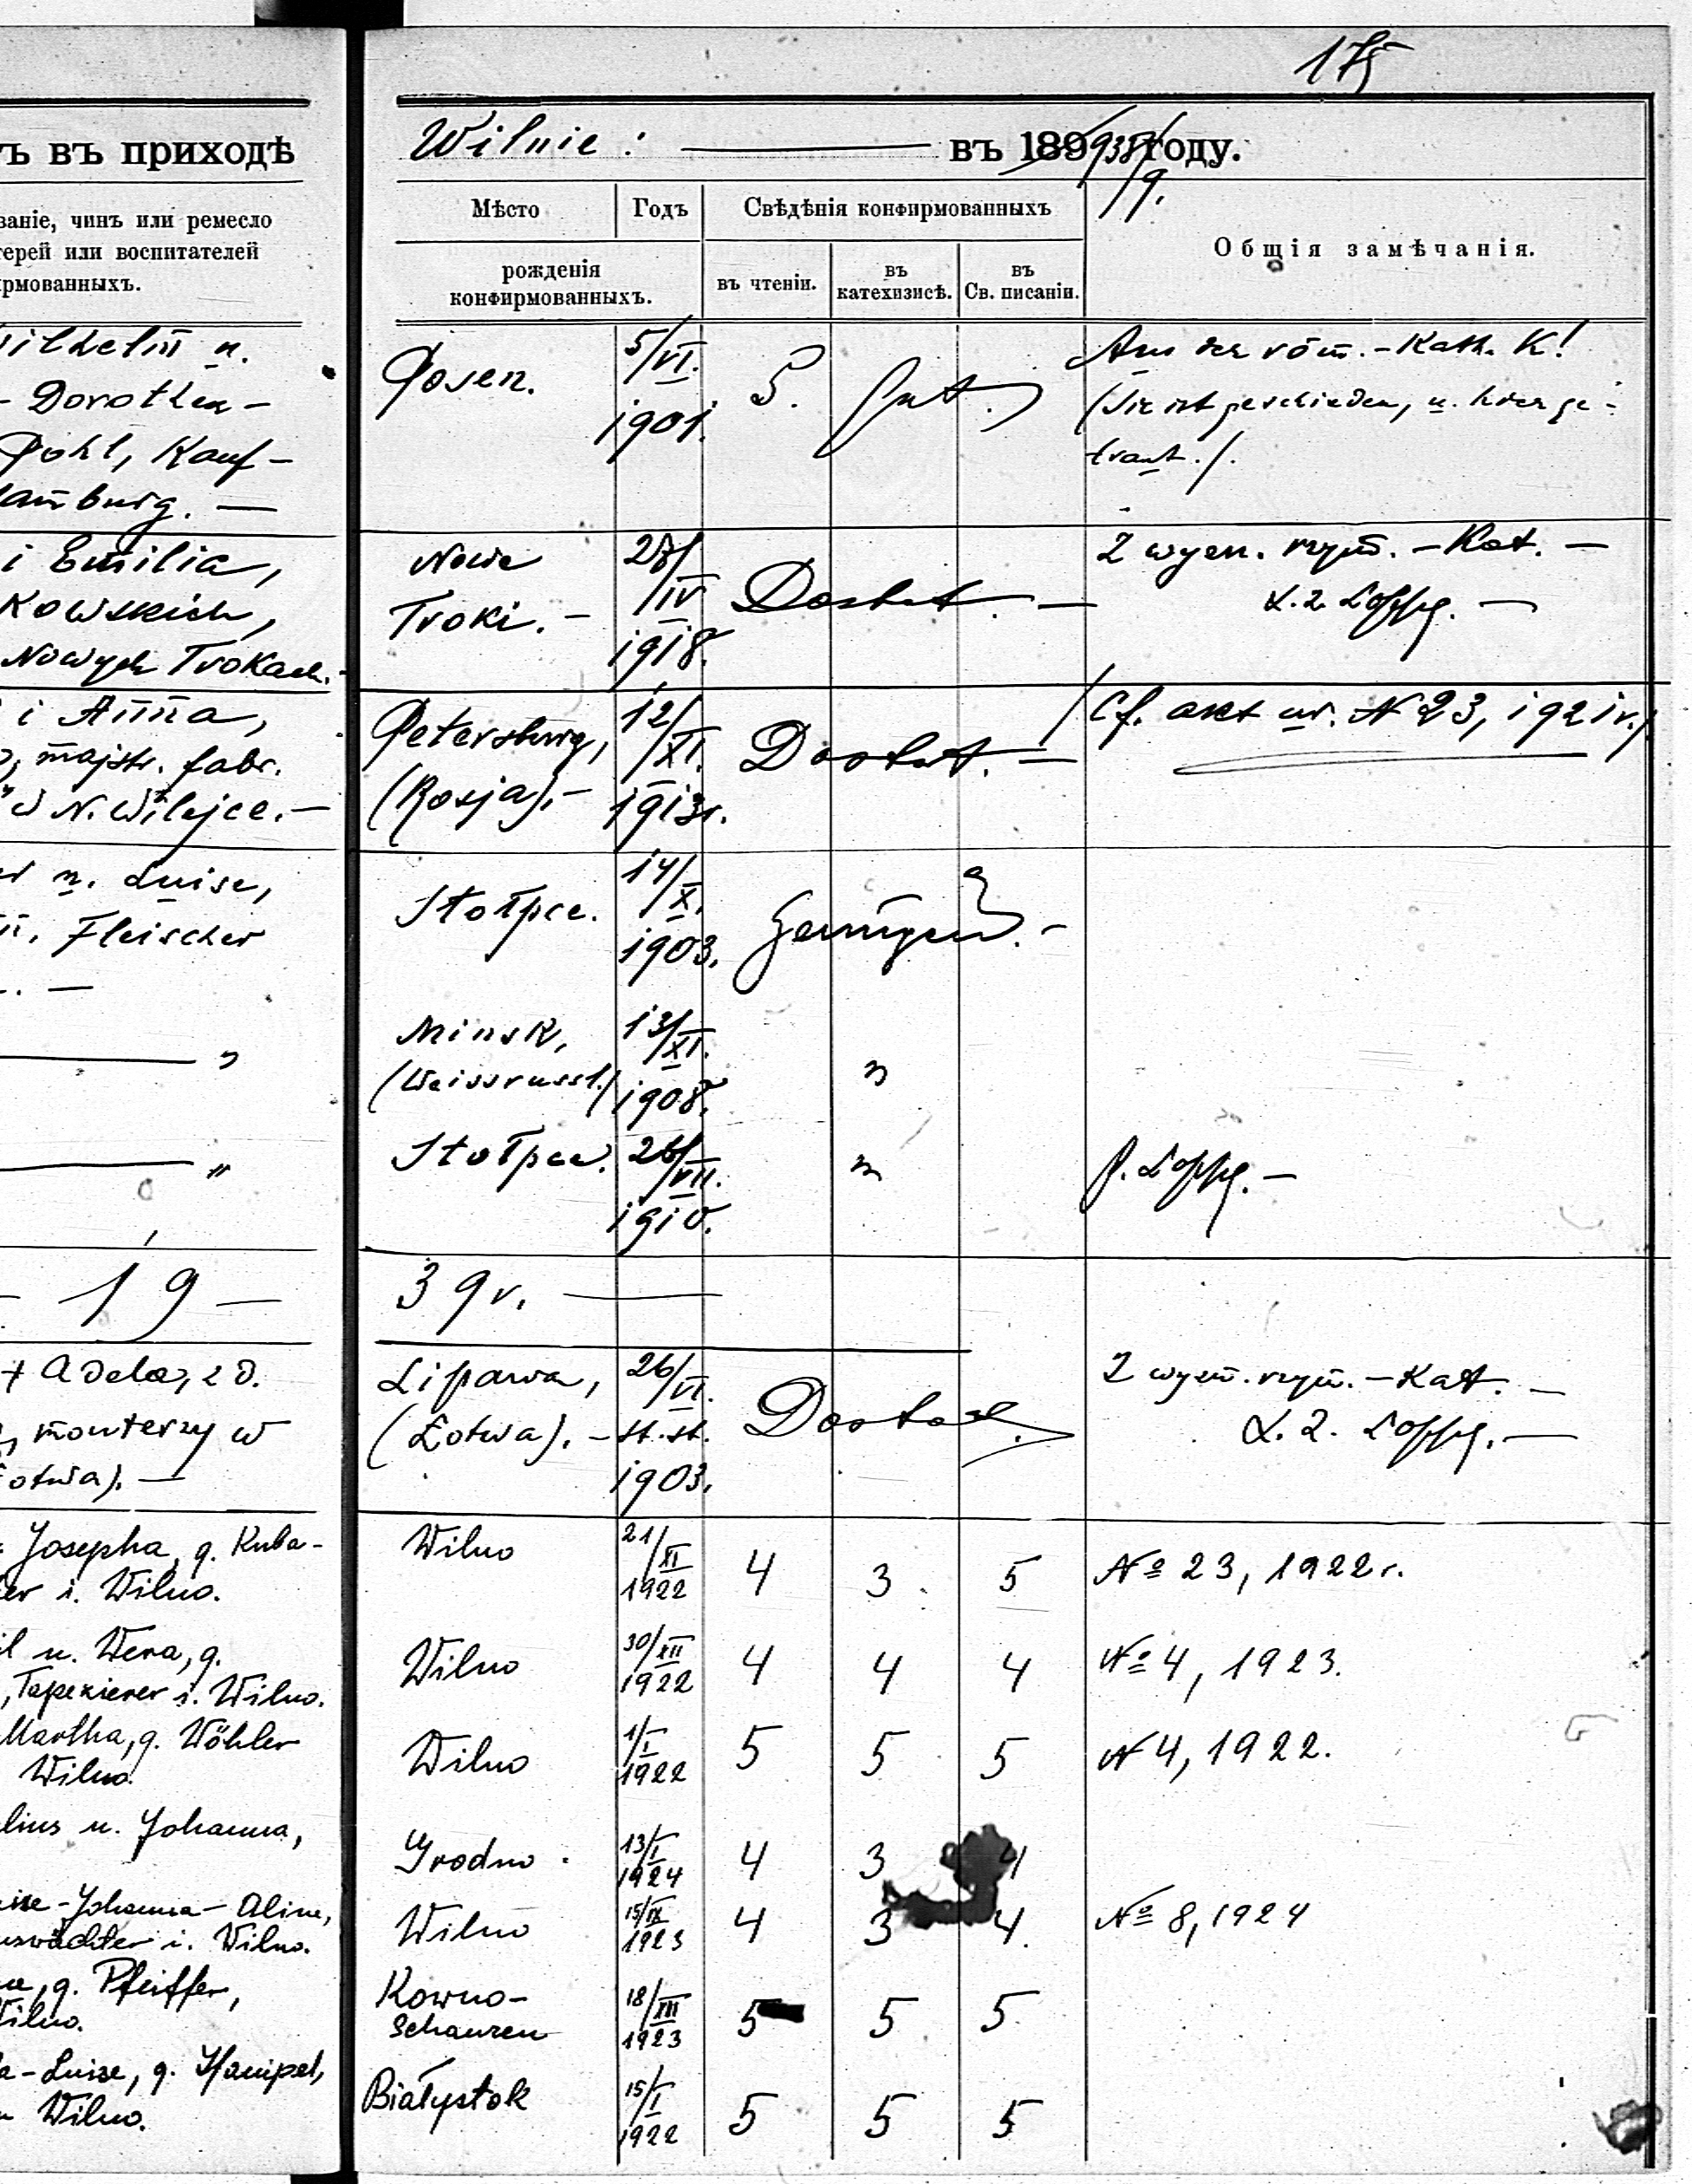 175
ъ въ приходѣ
Wilnie : — въ 1899 938/9. году.
ваніе, чинъ или ремесло
терей или воспитателей
ирмованныхъ.
Мѣсто
Годъ
рожденія
конфирмованныхъ.
Свѣдѣнія конфирмованныхъ
въ чтеніи.
въ
катехизисѣ.
въ
Св. писаніи.
Общія замѣчанія.
ilhelm u.
- Dorothea -
Pohl, Kauf-
amburg. —
Posen.
5/VI.
1901.
5. gut.
Aus der röm.-Kath. K!
(Sie ist geschieden, u. hier ge-
traut./.
i Emilia,
kowskich,
Nowych Trokach.-
Nowe
Troki. -
28/IV
1918.
Dostat. —
Z wyzn. rzym. - Kat. —
i Anna,
majstr. fabr.
w N. Wilejce. —
Petersburg,
(Rosja). -
12/XI.
1913r.
Dostat. —
/Cf. akt ur. N 23, 1921r./
u. Luise,
Fleischer
. —
Stołpce.
14/X.
1903.
Genügend. -
— "
Minsk,
(Weissrussl./
13/XI.
1908.
"
— "
Stołpce.
26/VII.
1910.
"
P. Loppe. -
- 19 —
39r. —
+ Adela, z d.
monterzy w
otwa). —
Lipawa,
(Łotwa). -
26/VI.
st. st.
1903.
Dostat.
Z wyzn. rzym. - Kat. —
Loppe. —
Josepha, g. Kuba-
er i. Wilno.
Wilno
21/XI
1922
4 3 5
№ 23, 1922r.
il u. Wera, g.
, Tapezierer i. Wilno.
Wilno
30/XII
1922
4 4 4
№ 4, 1923.
Martha, g. Wöhler
Wilno.
Wilno
1/I
1922
5 5 5
N 4, 1922.
lius u. Johanna,
Grodno.
13/I
1924
4 3 4
ise-Johanna-Aline,
uswächter i. Wilno.
Wilno
15/IX
1923
4 3 4.
№ 8, 1924
, g. Pfeiffer,
Wilno.
Kowno-
Schanzen
18/XII
1923
5 5 5
a-Luise, g. Hampel,
Wilno.
Białystok
15/I
1922
5 5 5